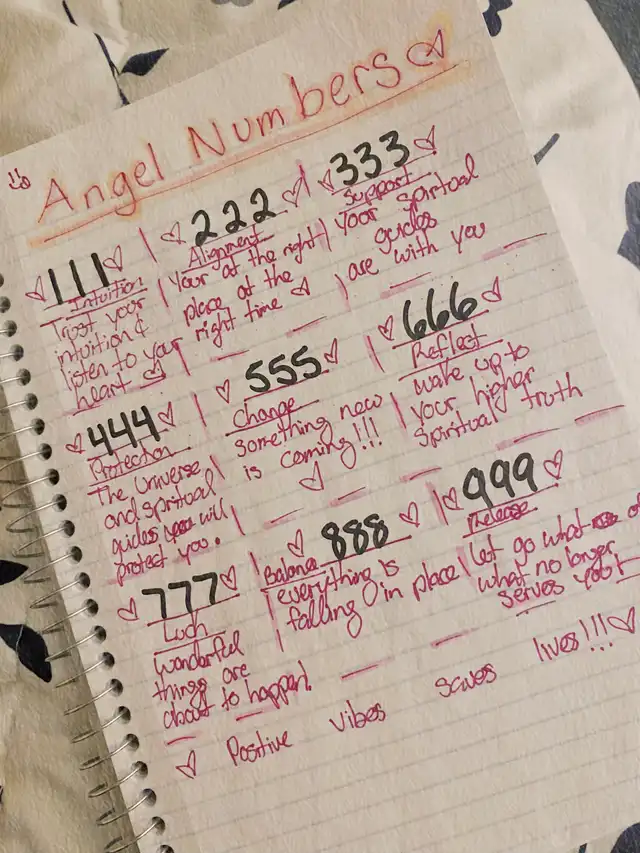 Angel Numbers
111
Intuition
Trust your
intuition &
listen to your
heart
222
Alignment
Your at the right
place at the
right time
333
Support
Your spiritual
guides
are with you
444
Protection
The Universe
and spiritual
guides will
protect you.
555
Change
something new
is coming!!!
666
Reflect
wake up to
your higher
spiritual truth
777
Luck
Wonderful
things are
about to happen!
888
Balance
everything is
falling in place
999
Release
Let go what
what no longer
serves you!
Positive vibes saves lives!!!